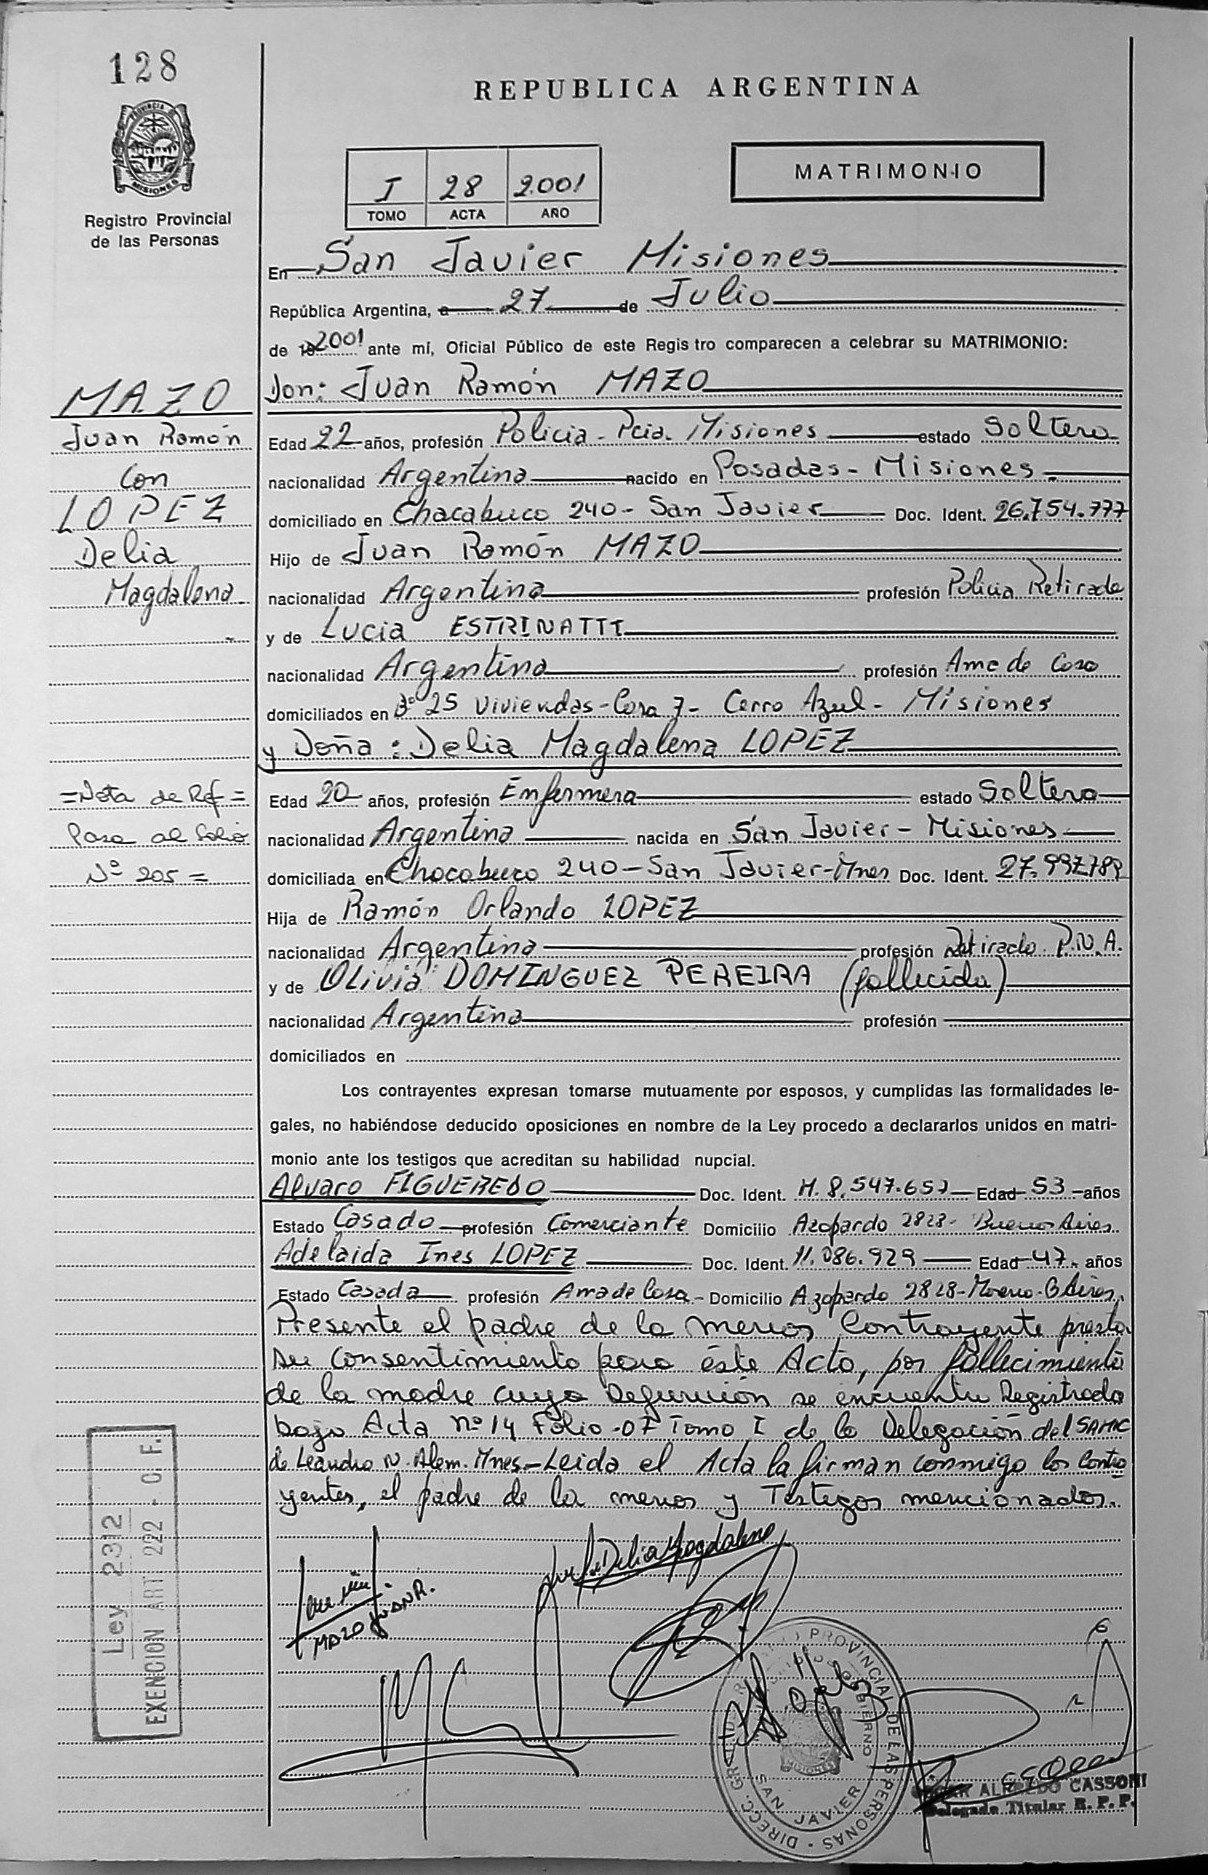 128
REPUBLICA ARGENTINA
PROVINCIA DE MISIONES
Registro Provincial
de las Personas
I 28 2001
TOMO ACTA AÑO
MATRIMONIO
En San Javier Misiones
República Argentina, a 27 de Julio
de 19 2001 ante mí, Oficial Público de este Regis tro comparecen a celebrar su MATRIMONIO:
Don: Juan Ramón MAZO
MAZO
Juan Ramón
Con
LOPEZ
Delia
Magdalena
Edad 22 años, profesión Policia - Pcia. Misiones estado Soltero
nacionalidad Argentina nacido en Posadas - Misiones
domiciliado en Chacabuco 240 - San Javier Doc. Ident. 26.754.777
Hijo de Juan Ramón MAZO
nacionalidad Argentina profesión Policia Retirado
y de Lucia ESTRINATTI
nacionalidad Argentina profesión Ama de Casa
domiciliados en Bº 25 Viviendas - Casa 7 - Cerro Azul - Misiones
y Doña: Delia Magdalena LOPEZ
=Nota de Ref=
Pasa al Folio
Nº 205 =
Edad 20 años, profesión Enfermera estado Soltera
nacionalidad Argentina nacida en San Javier - Misiones
domiciliada en Chacabuco 240 - San Javier - Mnes Doc. Ident. 27.992.789
Hija de Ramón Orlando LOPEZ
nacionalidad Argentina profesión Retirado P.N.A.
y de Olivia DOMINGUEZ PEREIRA (fallecida)
nacionalidad Argentina profesión
domiciliados en
Los contrayentes expresan tomarse mutuamente por esposos, y cumplidas las formalidades le-
gales, no habiéndose deducido oposiciones en nombre de la Ley procedo a declararlos unidos en matri-
monio ante los testigos que acreditan su habilidad nupcial.
Alvaro FIGUEREDO Doc. Ident. M. 8.547.657 Edad 53 años
Estado Casado profesión Comerciante Domicilio Azopardo 2828 - Buenos Aires.
Adelaida Ines LOPEZ Doc. Ident. 11.086.929 Edad 47 años
Estado Casada profesión Ama de Casa - Domicilio Azopardo 2828 - Moreno - B Aires.
Presente el padre de la menor Contrayente presta
su Consentimiento para éste Acto, por fallecimiento
de la madre cuya Defunción se encuentra Registrada
bajo Acta Nº 14 Folio - 07 Tomo I de la Delegación del
de Leandro N. Alem. Mnes - Leida el Acta la firman conmigo los Contra
yentes, el padre de la menor y Testigos mencionados.
Ley 2312
EXENCION ART 222 - O. F.
Delia Magdalena
MAZO JUAN R.
DIRECC. GRAL. DEL REGISTRO PROVINCIAL DE LAS PERSONAS
SAN JAVIER
ALFREDO CASSONI
Delegado Titular R. P. P.